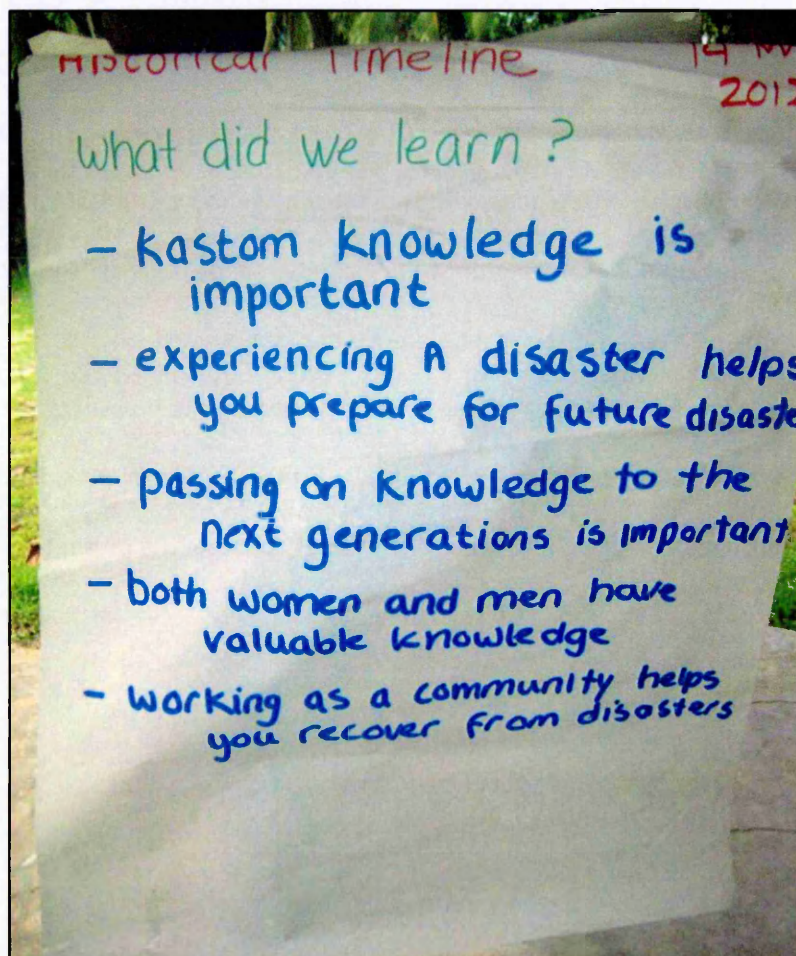 Historical Timeline 14
2012
what did we learn ?
- kastom knowledge is
important
- experiencing A disaster helps
you prepare for future
- passing on knowledge to the
next generations is important.
- both women and men have
valuable knowledge
- working as a community helps
you recover from disasters